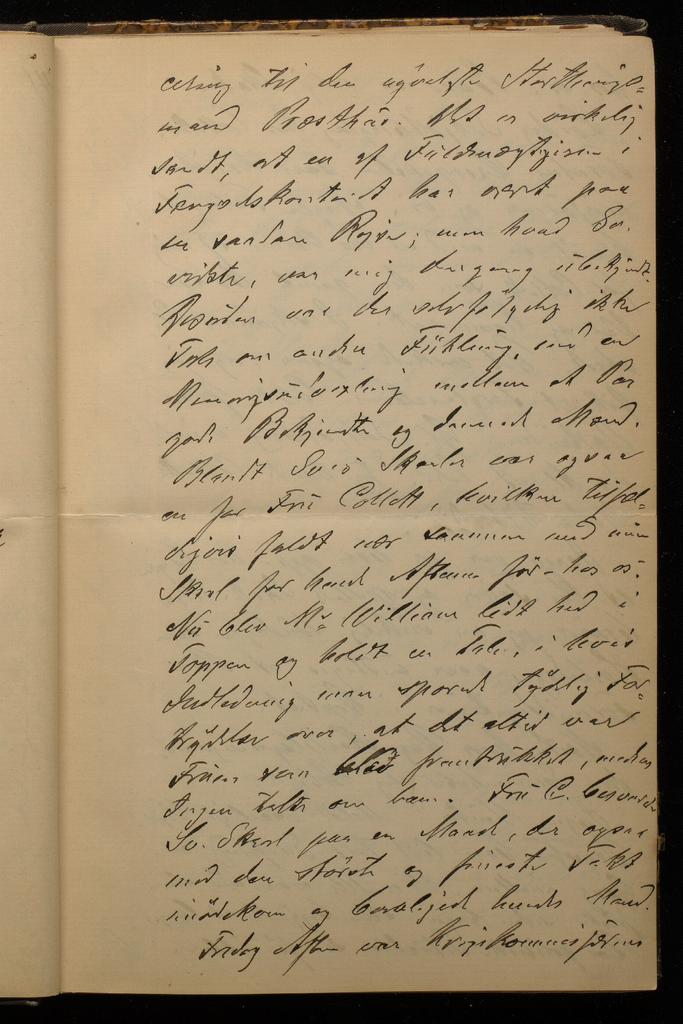 cering til den nyvalgte Storthings=
mand Præsthus. Det er virkelig
sandt, at en af Fuldmægtigerne i
Fængselskontoret har været paa
en saadan Rejse; men hvad
virkte, var mig dengang ubekjendt.
Desuden var der selvfølgelig ikke
Tale om anden Fühlung, end en
Meningsudvexling mellem et Par
gode Bekjendte og dannede Mænd.
Blandt Svs Skaaler var ogsaa
en for Fru Collett, hvilken tilfæl-
digvis faldt nær sammen med min
Skaal for hende Aftenen før – hos os.
Nu blev Mr William lidt hed i
Toppen og holdt en Tale, i hvis
Indledning man sporede tydelig For=
trydelse over, at det altid var
Fruen som blev fremtrukket, medens
Ingen talte om ham. Fru C. besvarede
Sv. Skaal paa en Maade, der ogsaa
med den største og fineste Takt
imødekom og beroligede hendes Mand.
Fredag Aften var Krigskommissærens